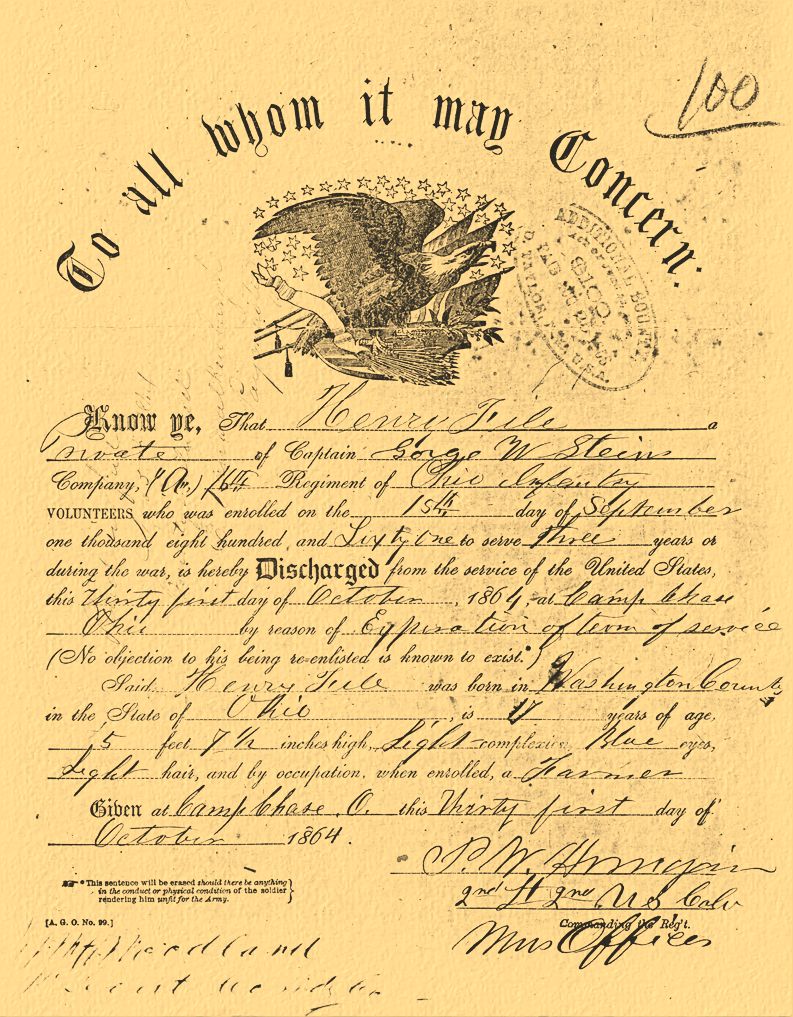 100
To all whom it may Concern:
ADDITIONAL BOUNTY
$100
U.S.A.
Know ye, That Henry File a
Private of Captain George W Steins
Company, (A.) Regiment of Ohio Infantry
VOLUNTEERS who was enrolled on the 15th day of September
one thousand eight hundred and Sixty one to serve three years or
during the war, is hereby Discharged from the service of the United States,
this Thirty first day of October, 1864, at Camp Chase
Ohio by reason of Expiration of term of service
(No objection to his being re-enlisted is known to exist.*)
Said Henry File was born in Washington County
in the State of Ohio, is 17 years of age,
5 feet 7 1/2 inches high, Light complexion, Blue eyes,
Light hair, and by occupation, when enrolled, a Farmer
Given at Camp Chase, O. this Thirty first day of
October 1864.
* This sentence will be erased should there be anything
in the conduct or physical condition of the soldier
rendering him unfit for the Army.
2nd Lt 2nd US Calv
[A. G. O. No. 99.]
Commanding the Reg't.
Mus Officer